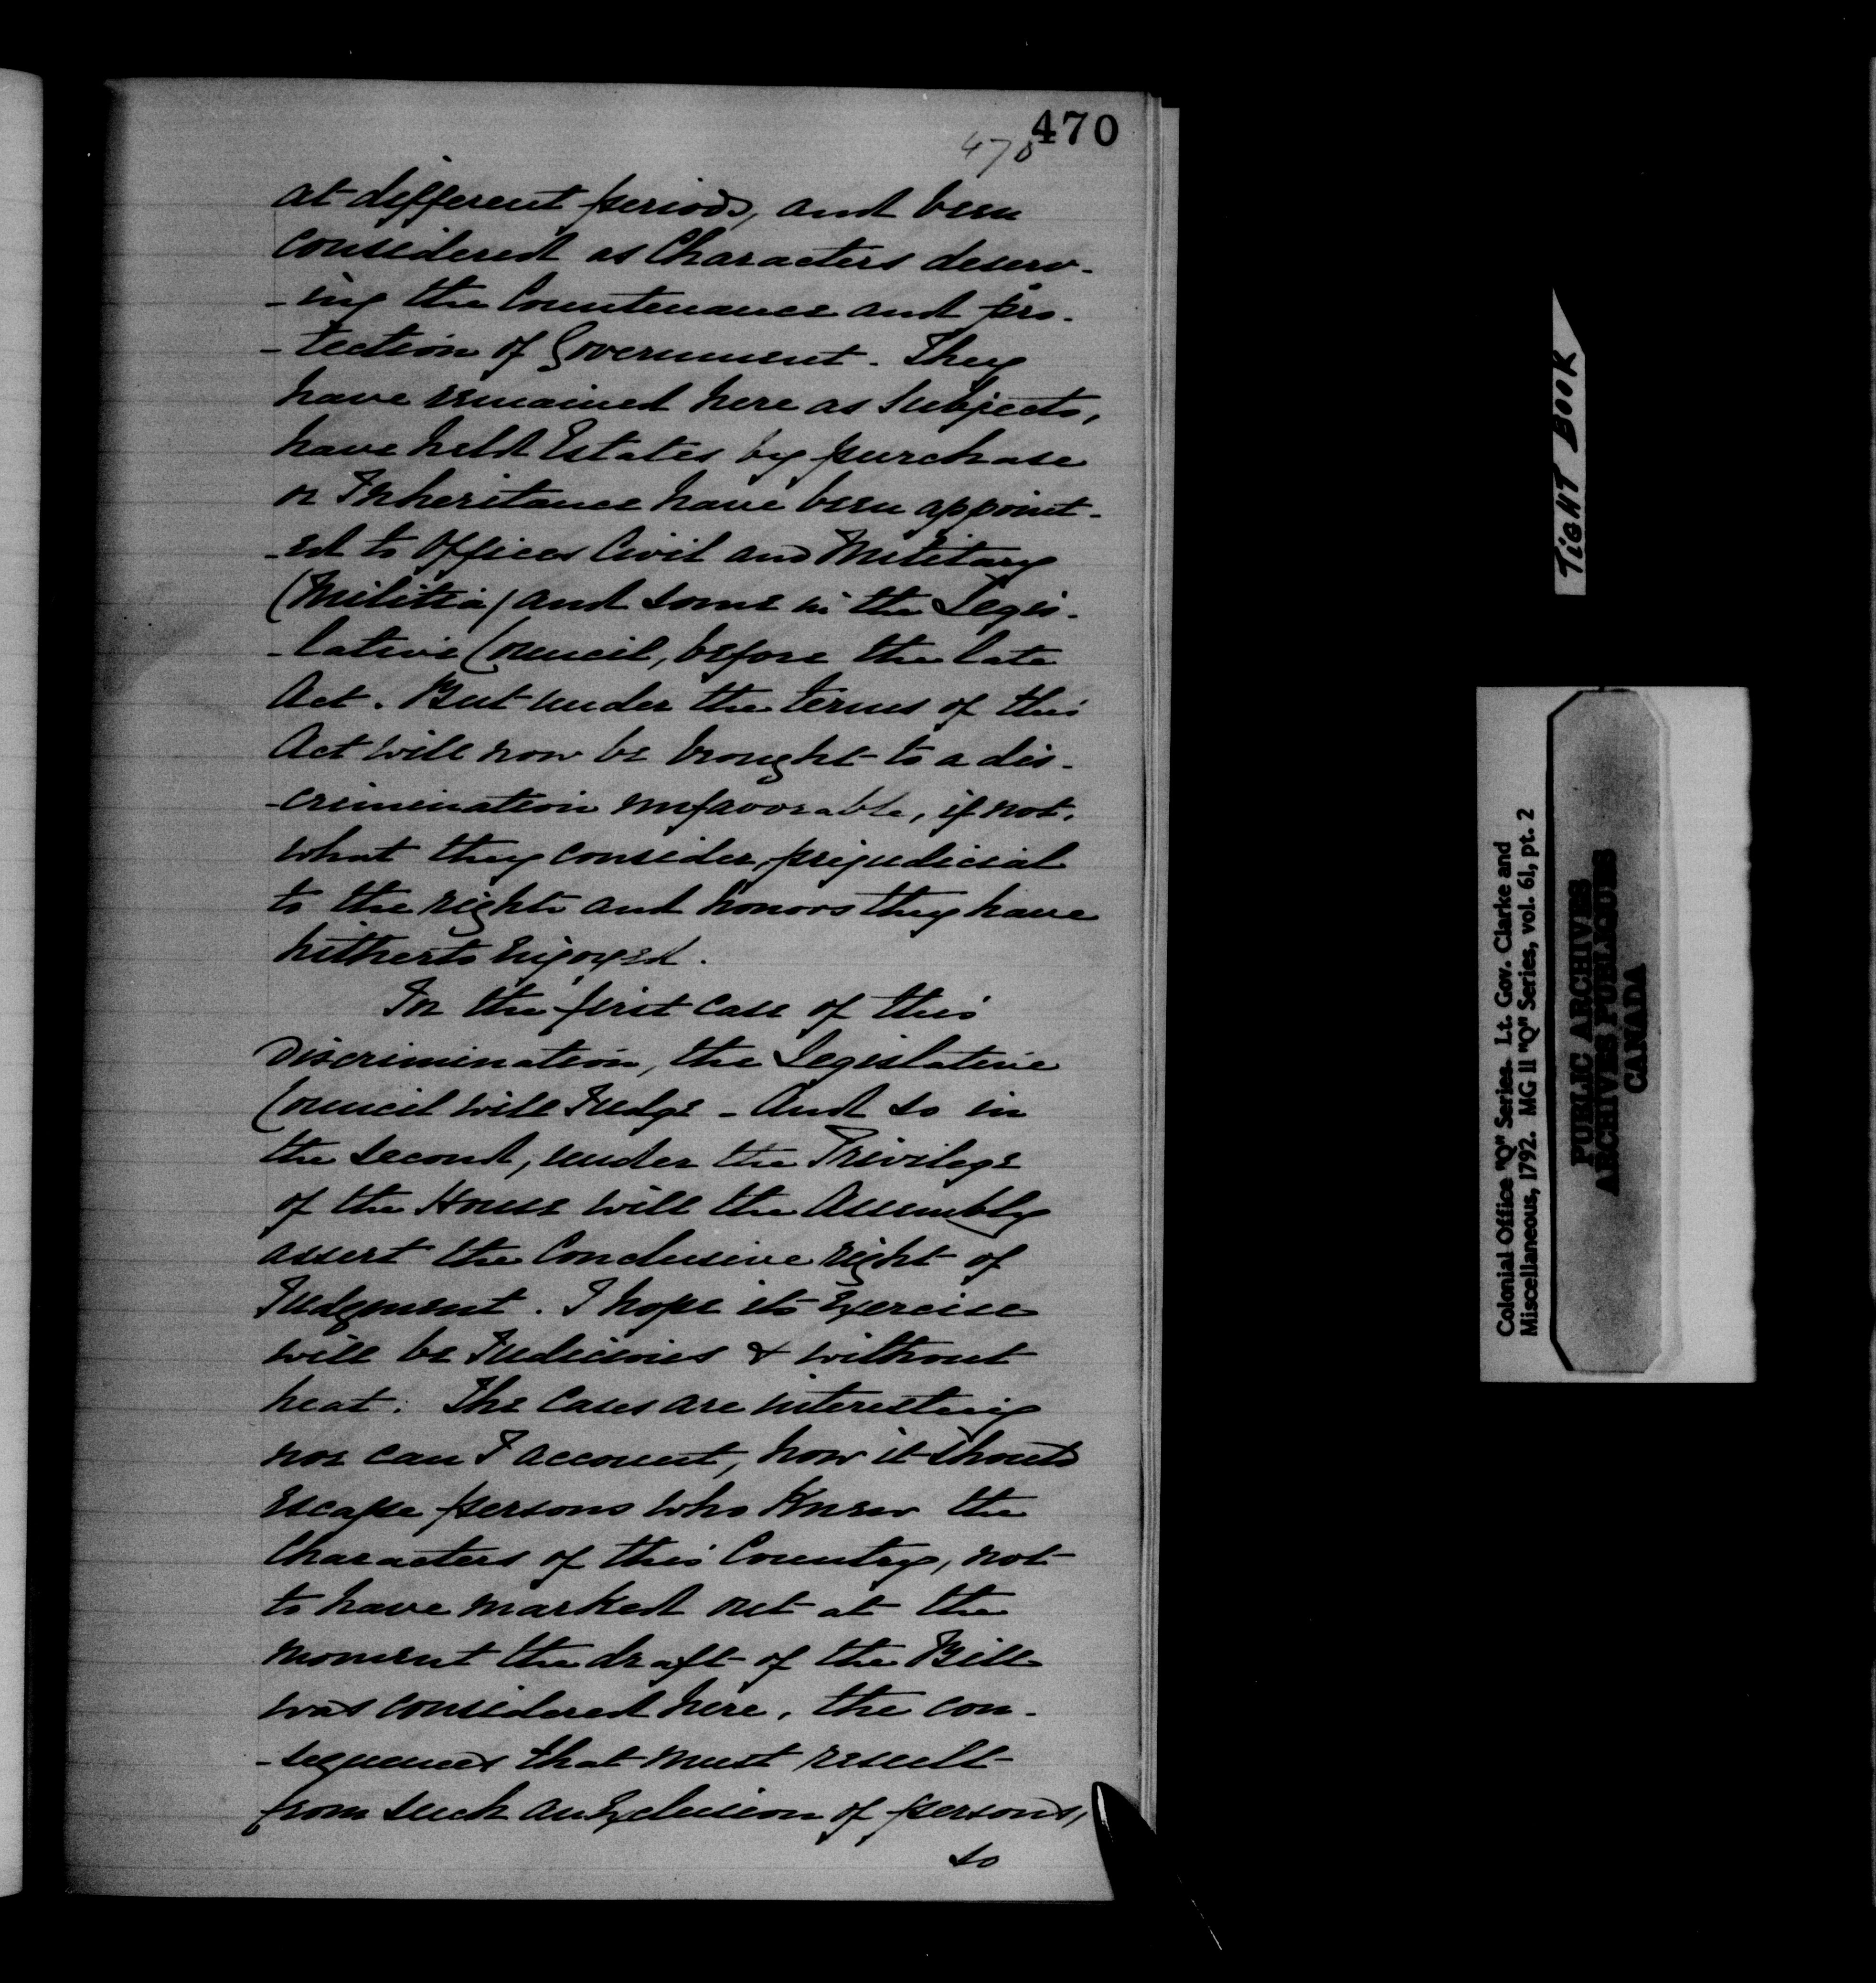 470
470
at different periods, and been
considered as Characters deserv-
-ing the Countenance and pro-
-tection of Government. They
have remained here as Subjects,
have held Estates by purchase
or Inheritance have been appoint-
-ed to Offices Civil and Military
(Militia) and some in the Legis-
-lative Council, before the late
Act. But under the terms of this
Act will now be brought to a dis-
-crimination unfavorable, if not,
what they consider, prejudicial
to the rights and honors they have
hitherto enjoyed.
In the first case of this
Discrimination, the Legislative
Council will Judge - And so in
the second, under the Privilege
of the House will the Assembly
assert the Conclusive right of
Judgment. I hope its Exercise
will be Judicious & without
heat. The Cases are interesting
nor can I account, how it should
escape persons who Knew the
Characters of this Country, not
to have marked out at the
moment the draft of the Bill
was considered here, the con-
-sequences that must result
from such an Exclusion of persons,
so
TIGHT BOOK
Colonial Office "Q" Series. Lt. Gov. Clarke and
Miscellaneous, 1792. MG 11 "Q" Series, vol. 61, pt. 2
PUBLIC ARCHIVES
ARCHIVES PUBLIQUES
CANADA